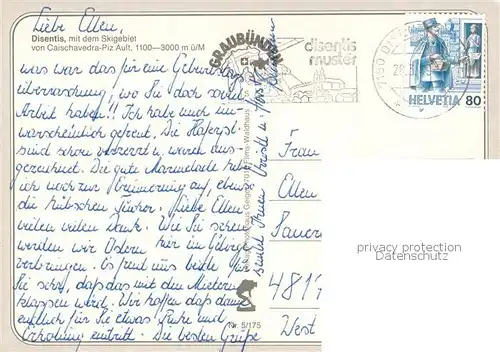 Liebe Ellen,
Disentis, mit dem Skigebiet
von Caischavedra-Piz Ault, 1100—3000 m ü/M
was war das für eine Geburtstags
überraschung, wo Sie doch soviel
Arbeit haben!! Ich habe mich un-
warscheinlich gefreut. Die Haferpl.
sind schon verzerrt u. waren aus-
gezeichnet. Die gute Marmelade hebe
ich noch zur Erinnerung auf, ebenso
die hübschen Tücher. Liebe Ellen,
vielen vielen Dank. Wie Sie sehen
werden wir Ostern hier im Gebirge
verbringen. Es freut uns beide für
Sie sehr, daß das mit den Mietern
klappen wird. Wir hoffen daß dann
endlich für Sie etwas Ruhe und
Erholung eintritt. Die besten Grüße
sendet Ihnen
GRAUBÜNDEN
disentis
muster
HELVETIA 80
7018 Flims-Waldhaus
Nr. 5/175
Frau
Ellen
4817
West
privacy protection
Datenschutz